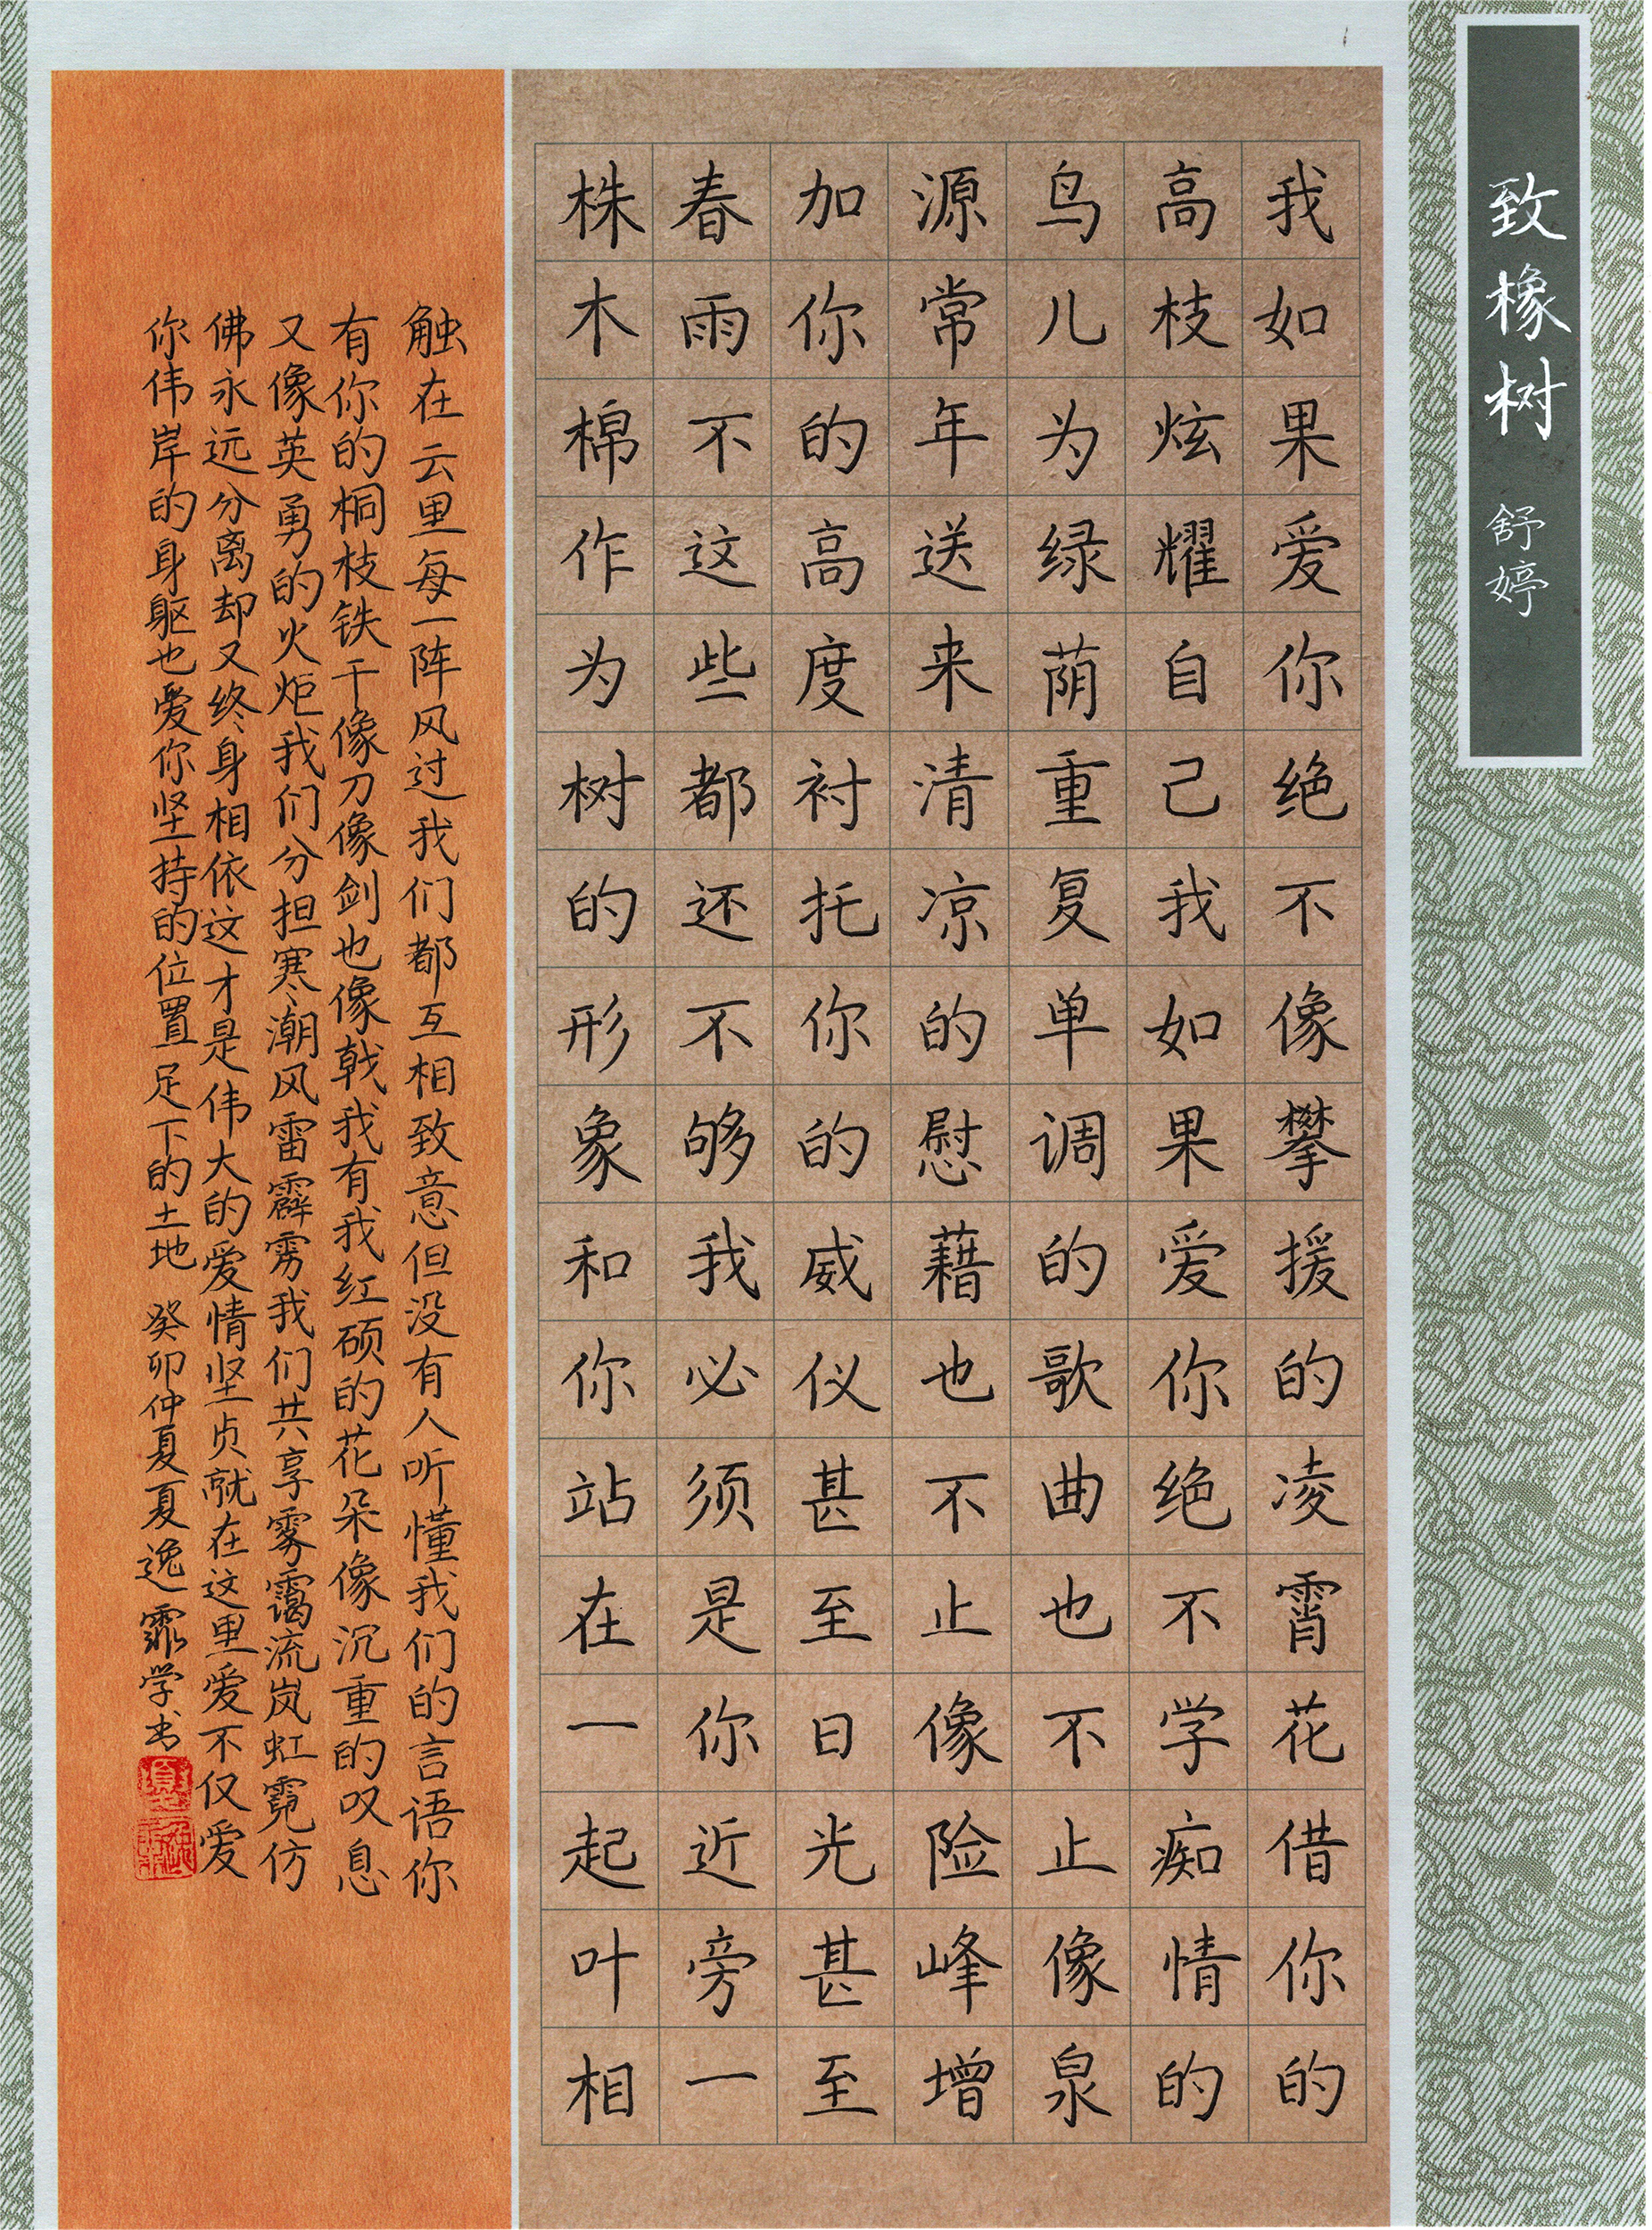 致橡树 舒婷
我如果爱你绝不像攀援的凌霄花借你的
高枝炫耀自己我如果爱你绝不学痴情的
鸟儿为绿荫重复单调的歌曲也不止像泉
源常年送来清凉的慰藉也不止像险峰增
加你的高度衬托你的威仪甚至日光甚至
春雨不这些都还不够我必须是你近旁一
株木棉作为树的形象和你站在一起叶相
触在云里每一阵风过我们都互相致意但没有人听懂我们的言语你
有你的桐枝铁干像刀像剑也像戟我有我红硕的花朵像沉重的叹息
又像英勇的火炬我们分担寒潮风雷霹雳我们共享雾霭流岚虹霓仿
佛永远分离却又终身相依这才是伟大的爱情坚贞就在这里爱不仅爱
你伟岸的身躯也爱你坚持的位置足下的土地 癸卯仲夏夏逸霏学书